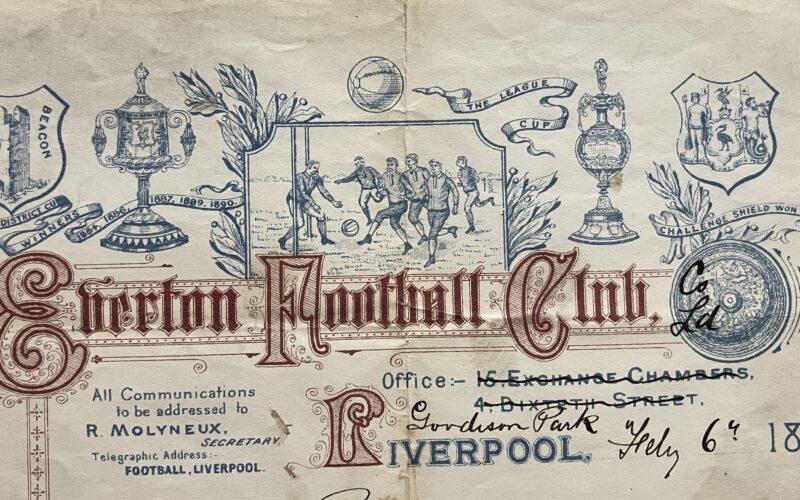 BEACON
THE LEAGUE
CUP
DISTRICT CUP
WINNERS
1884, 1886, 1887, 1889, 1890.
CHALLENGE SHIELD WON
Everton Football Club, Co
Ld
All Communications
to be addressed to
R. MOLYNEUX,
SECRETARY.
Telegraphic Address:-
FOOTBALL, LIVERPOOL.
Office:- 15 EXCHANGE CHAMBERS,
4, BIXTETH STREET.
Goodison Park
LIVERPOOL, Feby 6th 18